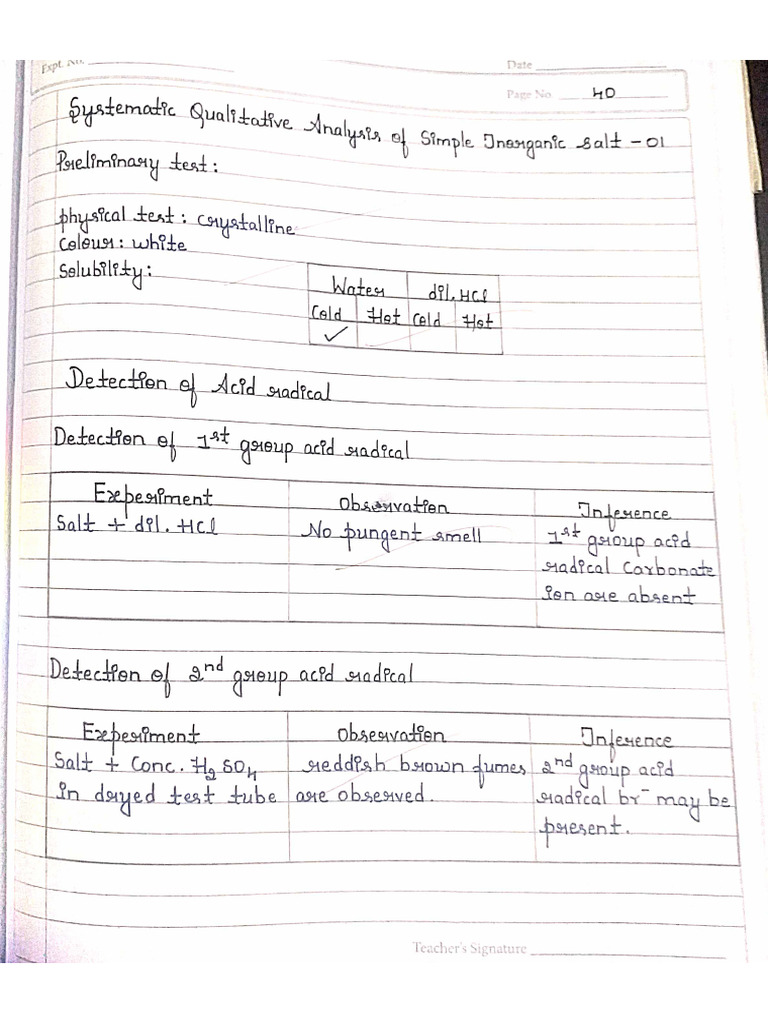 Expt. No.
Date
Page No. 40
Systematic Qualitative Analysis of Simple Inorganic salt - 01
Preliminary test:
physical test: crystalline
Colour: white
Solubility:
Water dil. HCl
Cold Hot Cold Hot
✓
Detection of Acid radical
Detection of 1st group acid radical
Experiment Observation Inference
Salt + dil. HCl No pungent smell 1st group acid
radical Carbonate
ion are absent
Detection of 2nd group acid radical
Experiment Observation Inference
Salt + Conc. H2SO4 reddish brown fumes 2nd group acid
in dryed test tube are observed. radical br- may be
present.
Teacher's Signature